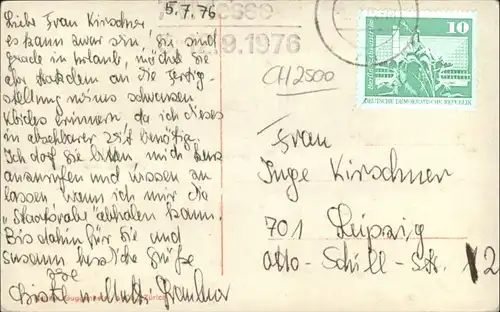 5.7.76
Liebe Frau Kirschner
es kann zwar sein, Sie sind
grade in Urlaub, möchte Sie
aber trotzdem an die Fertig-
stellung meines schwarzen
Kleides erinnern, da ich dieses
in absehbarer Zeit benötige.
Ich darf Sie bitten, mich kurz
anzurufen und wissen zu
lassen, wann ich mir die
"Staatsrobe" abholen kann.
Bis dahin für Sie und
Susann herzliche Grüße
Ihre
messe
9.1976
10
DEUTSCHE DEMOKRATISCHE REPUBLIK
CH2500
Frau
Inge Kirschner
701 Leipzig
Otto-Schill-Str. 2
Zürich